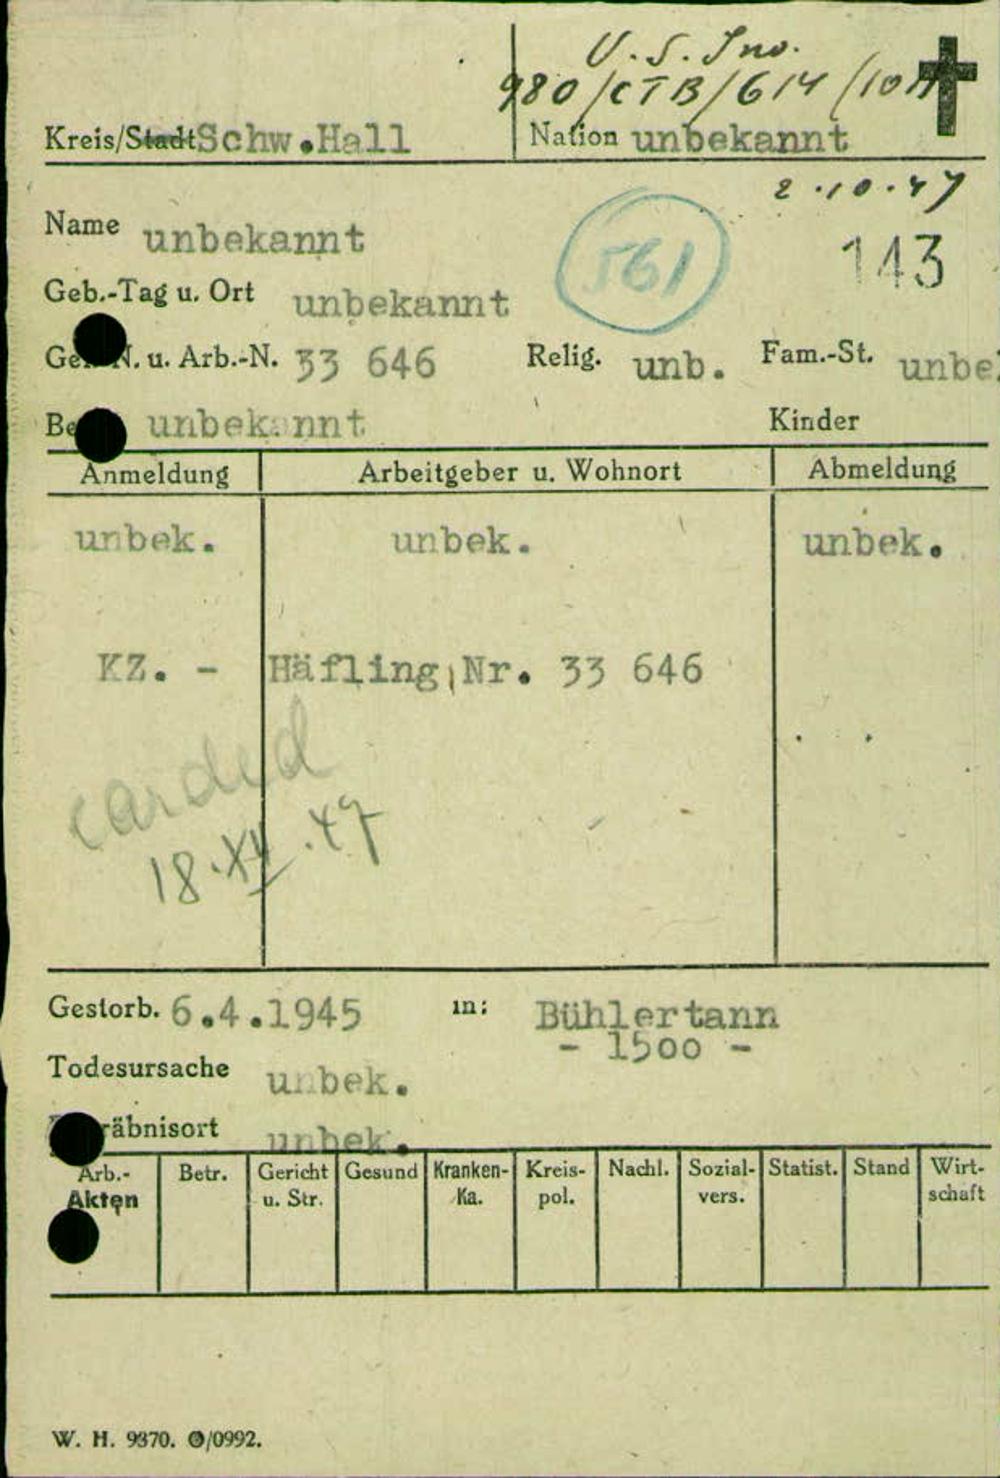 U. S. Inv.
980/CTB/614/10A
Kreis/Stadt Schw.Hall
Nation unbekannt
2.10.47
Name unbekannt
561
143
Geb.-Tag u. Ort unbekannt
N. u. Arb.-N. 33 646 Relig. unb. Fam.-St. unbe
unbekannt Kinder
Anmeldung Arbeitgeber u. Wohnort Abmeldung
unbek. unbek. unbek.
KZ. - Häfling Nr. 33 646
carded
18.XII.47
Gestorb. 6.4.1945 in: Bühlertann
- 1500 -
Todesursache unbek.
räbnisort unbek.
Arb.- Akten Betr. Gericht u. Str. Gesund Kranken- Ka. Kreis- pol. Nachl. Sozial- vers. Statist. Stand Wirt- schaft
W. H. 9370. /0992.